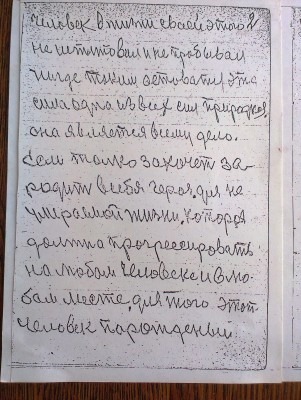 человек в жизни своей этого 2
не испитовал и не пробывал
нигде таким оставатся эта
сила одна из всех сил природы.
она является всему дело.
если только захочет за-
родить в себя героя. для не
умираемой жизни, которая
должна прогрессировать
на любом человеске и в лю-
бом месте, для того этот
человек парожденый